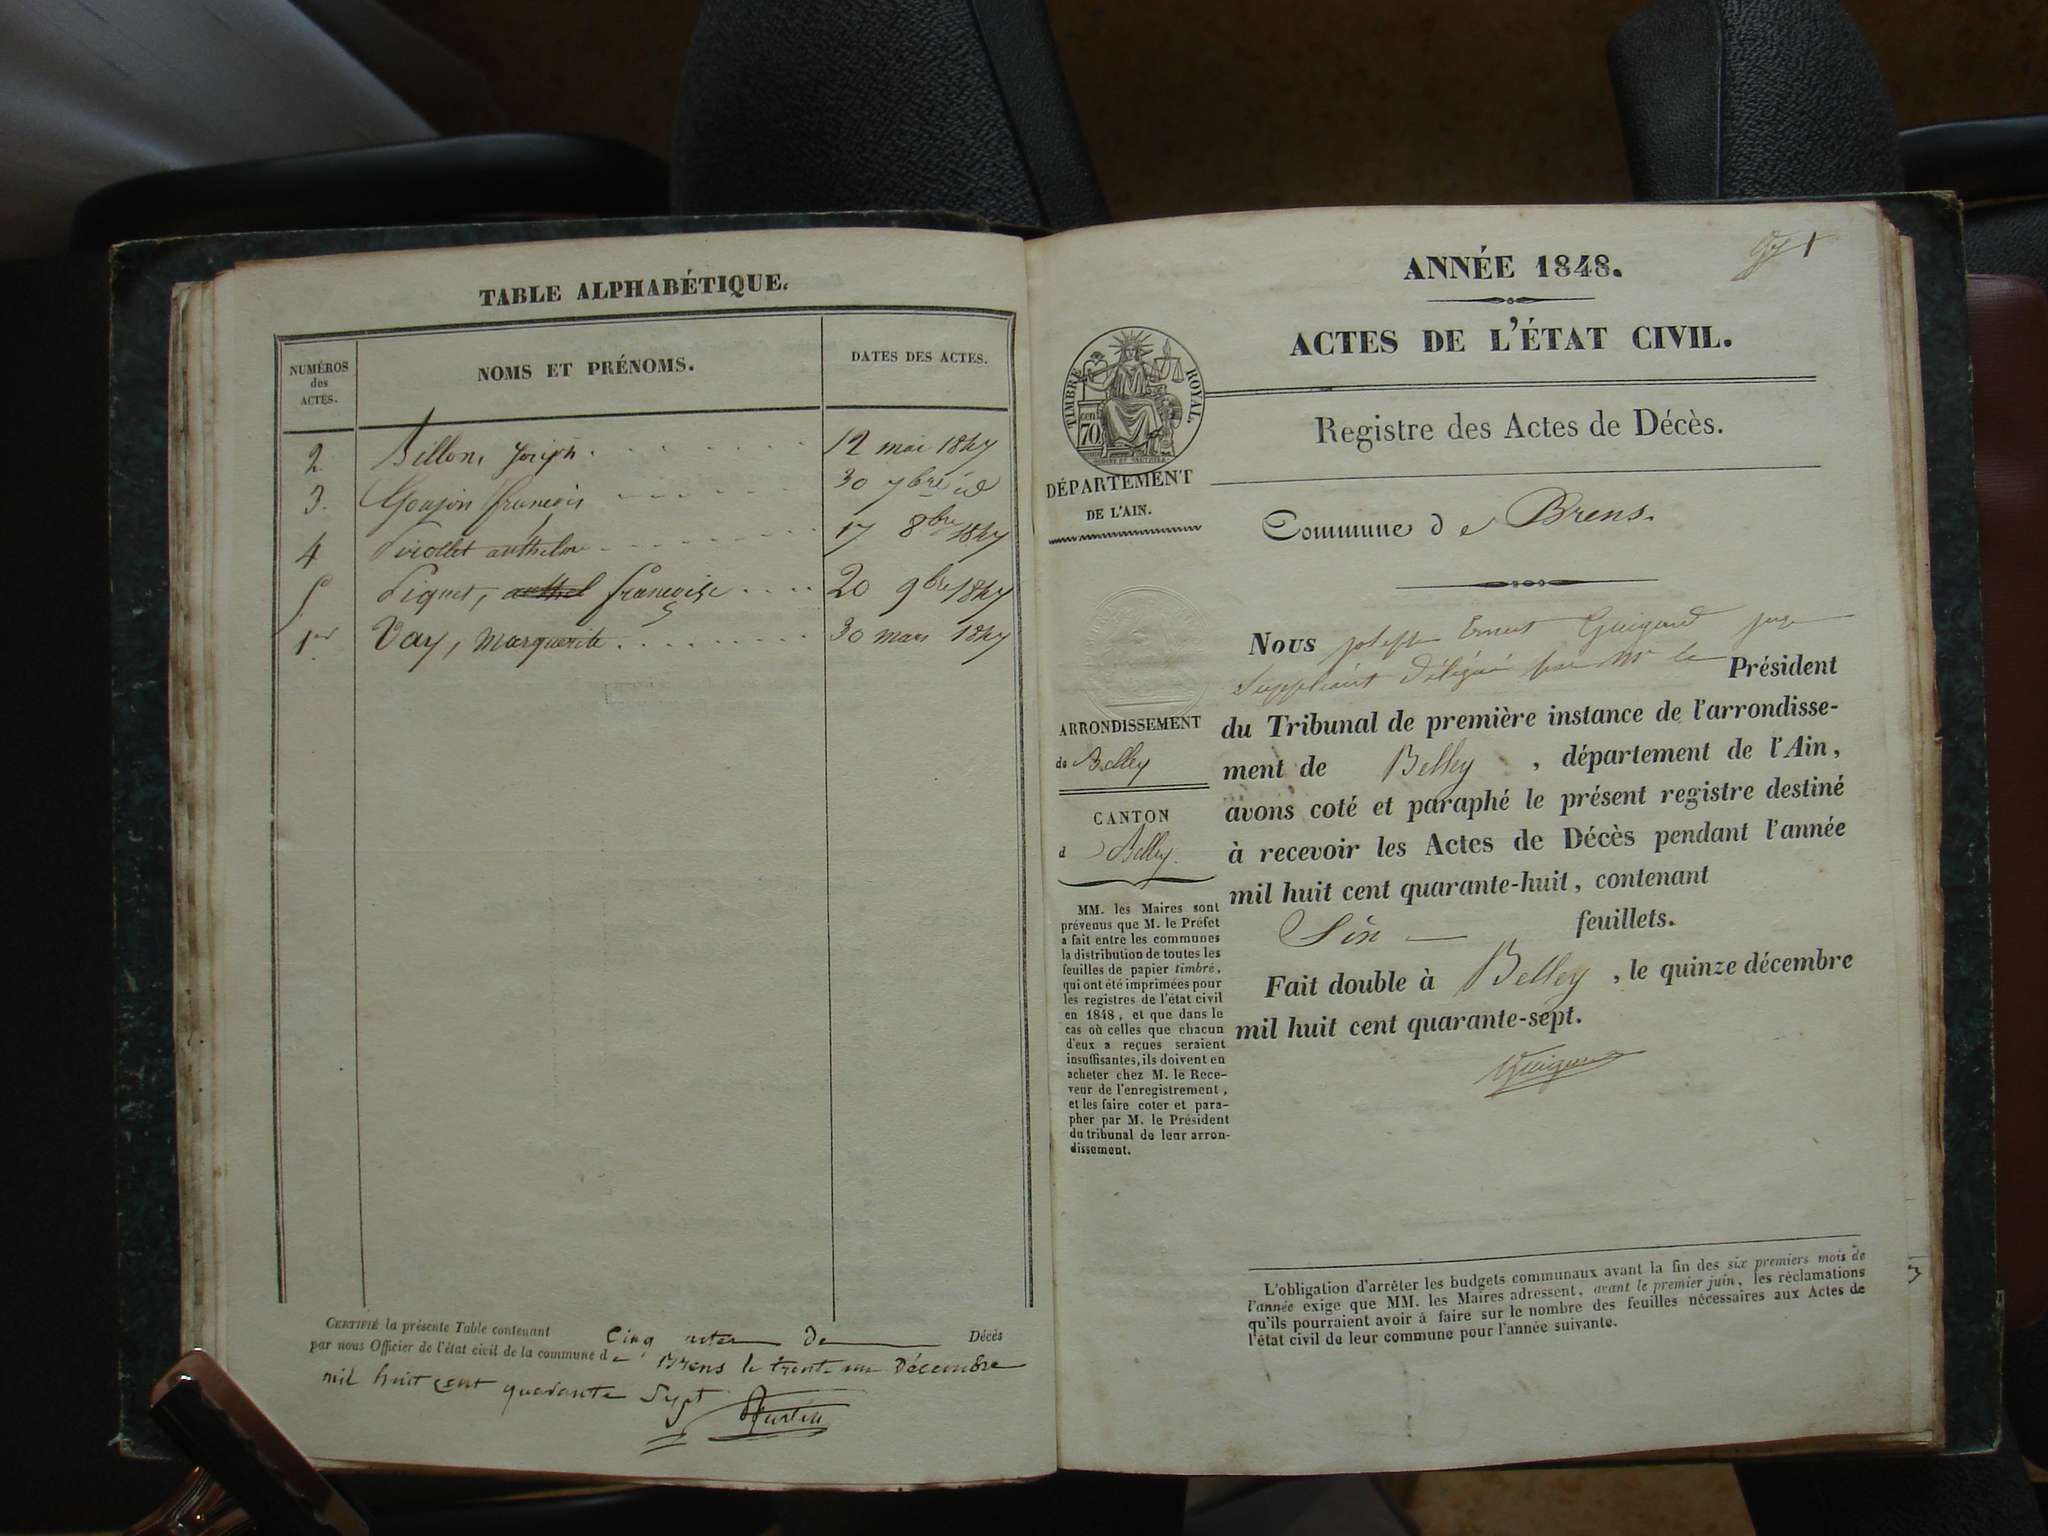 TABLE ALPHABÉTIQUE.
NUMÉROS des ACTES. NOMS ET PRÉNOMS. DATES DES ACTES.
2 Billon, Joseph 12 mai 1847
3. Goujon françois 30 7bre id
4 Pirollet anthelme 17 8bre 1847
5 Piquet, françoise 20 9bre 1847
1er Vay, Marguerite 30 mars 1847
CERTIFIÉ la présente Table contenant Cinq actes De Décès
par nous Officier de l'état civil de la commune de Brens le trente un Décembre
mil huit cent quarante Sept
ANNÉE 1848.
1
ACTES DE L'ÉTAT CIVIL.
TIMBRE ROYAL
cen 70
Registre des Actes de Décès.
DÉPARTEMENT
DE L'AIN.
Commune de Brens.
Nous joseph Ernest Guigard juge
Suppléant Délégué par Mr le Président
du Tribunal de première instance de l'arrondisse-
ment de Belley, département de l'Ain,
avons coté et paraphé le présent registre destiné
à recevoir les Actes de Décès pendant l'année
mil huit cent quarante-huit, contenant
Six feuillets.
Fait double à Belley, le quinze décembre
mil huit cent quarante-sept.
ARRONDISSEMENT
de Belley
CANTON
d Belley.
MM. les Maires sont
prévenus que M. le Préfet
a fait entre les communes
la distribution de toutes les
feuilles de papier timbré,
qui ont été imprimées pour
les registres de l'état civil
en 1848, et que dans le
cas où celles que chacun
d'eux a reçues seraient
insuffisantes, ils doivent en
acheter chez M. le Rece-
veur de l'enregistrement,
et les faire coter et para-
pher par M. le Président
du tribunal de leur arron-
dissement.
L'obligation d'arrêter les budgets communaux avant la fin des six premiers mois de
l'année exige que MM. les Maires adressent, avant le premier juin, les réclamations
qu'ils pourraient avoir à faire sur le nombre des feuilles nécessaires aux Actes de
l'état civil de leur commune pour l'année suivante.